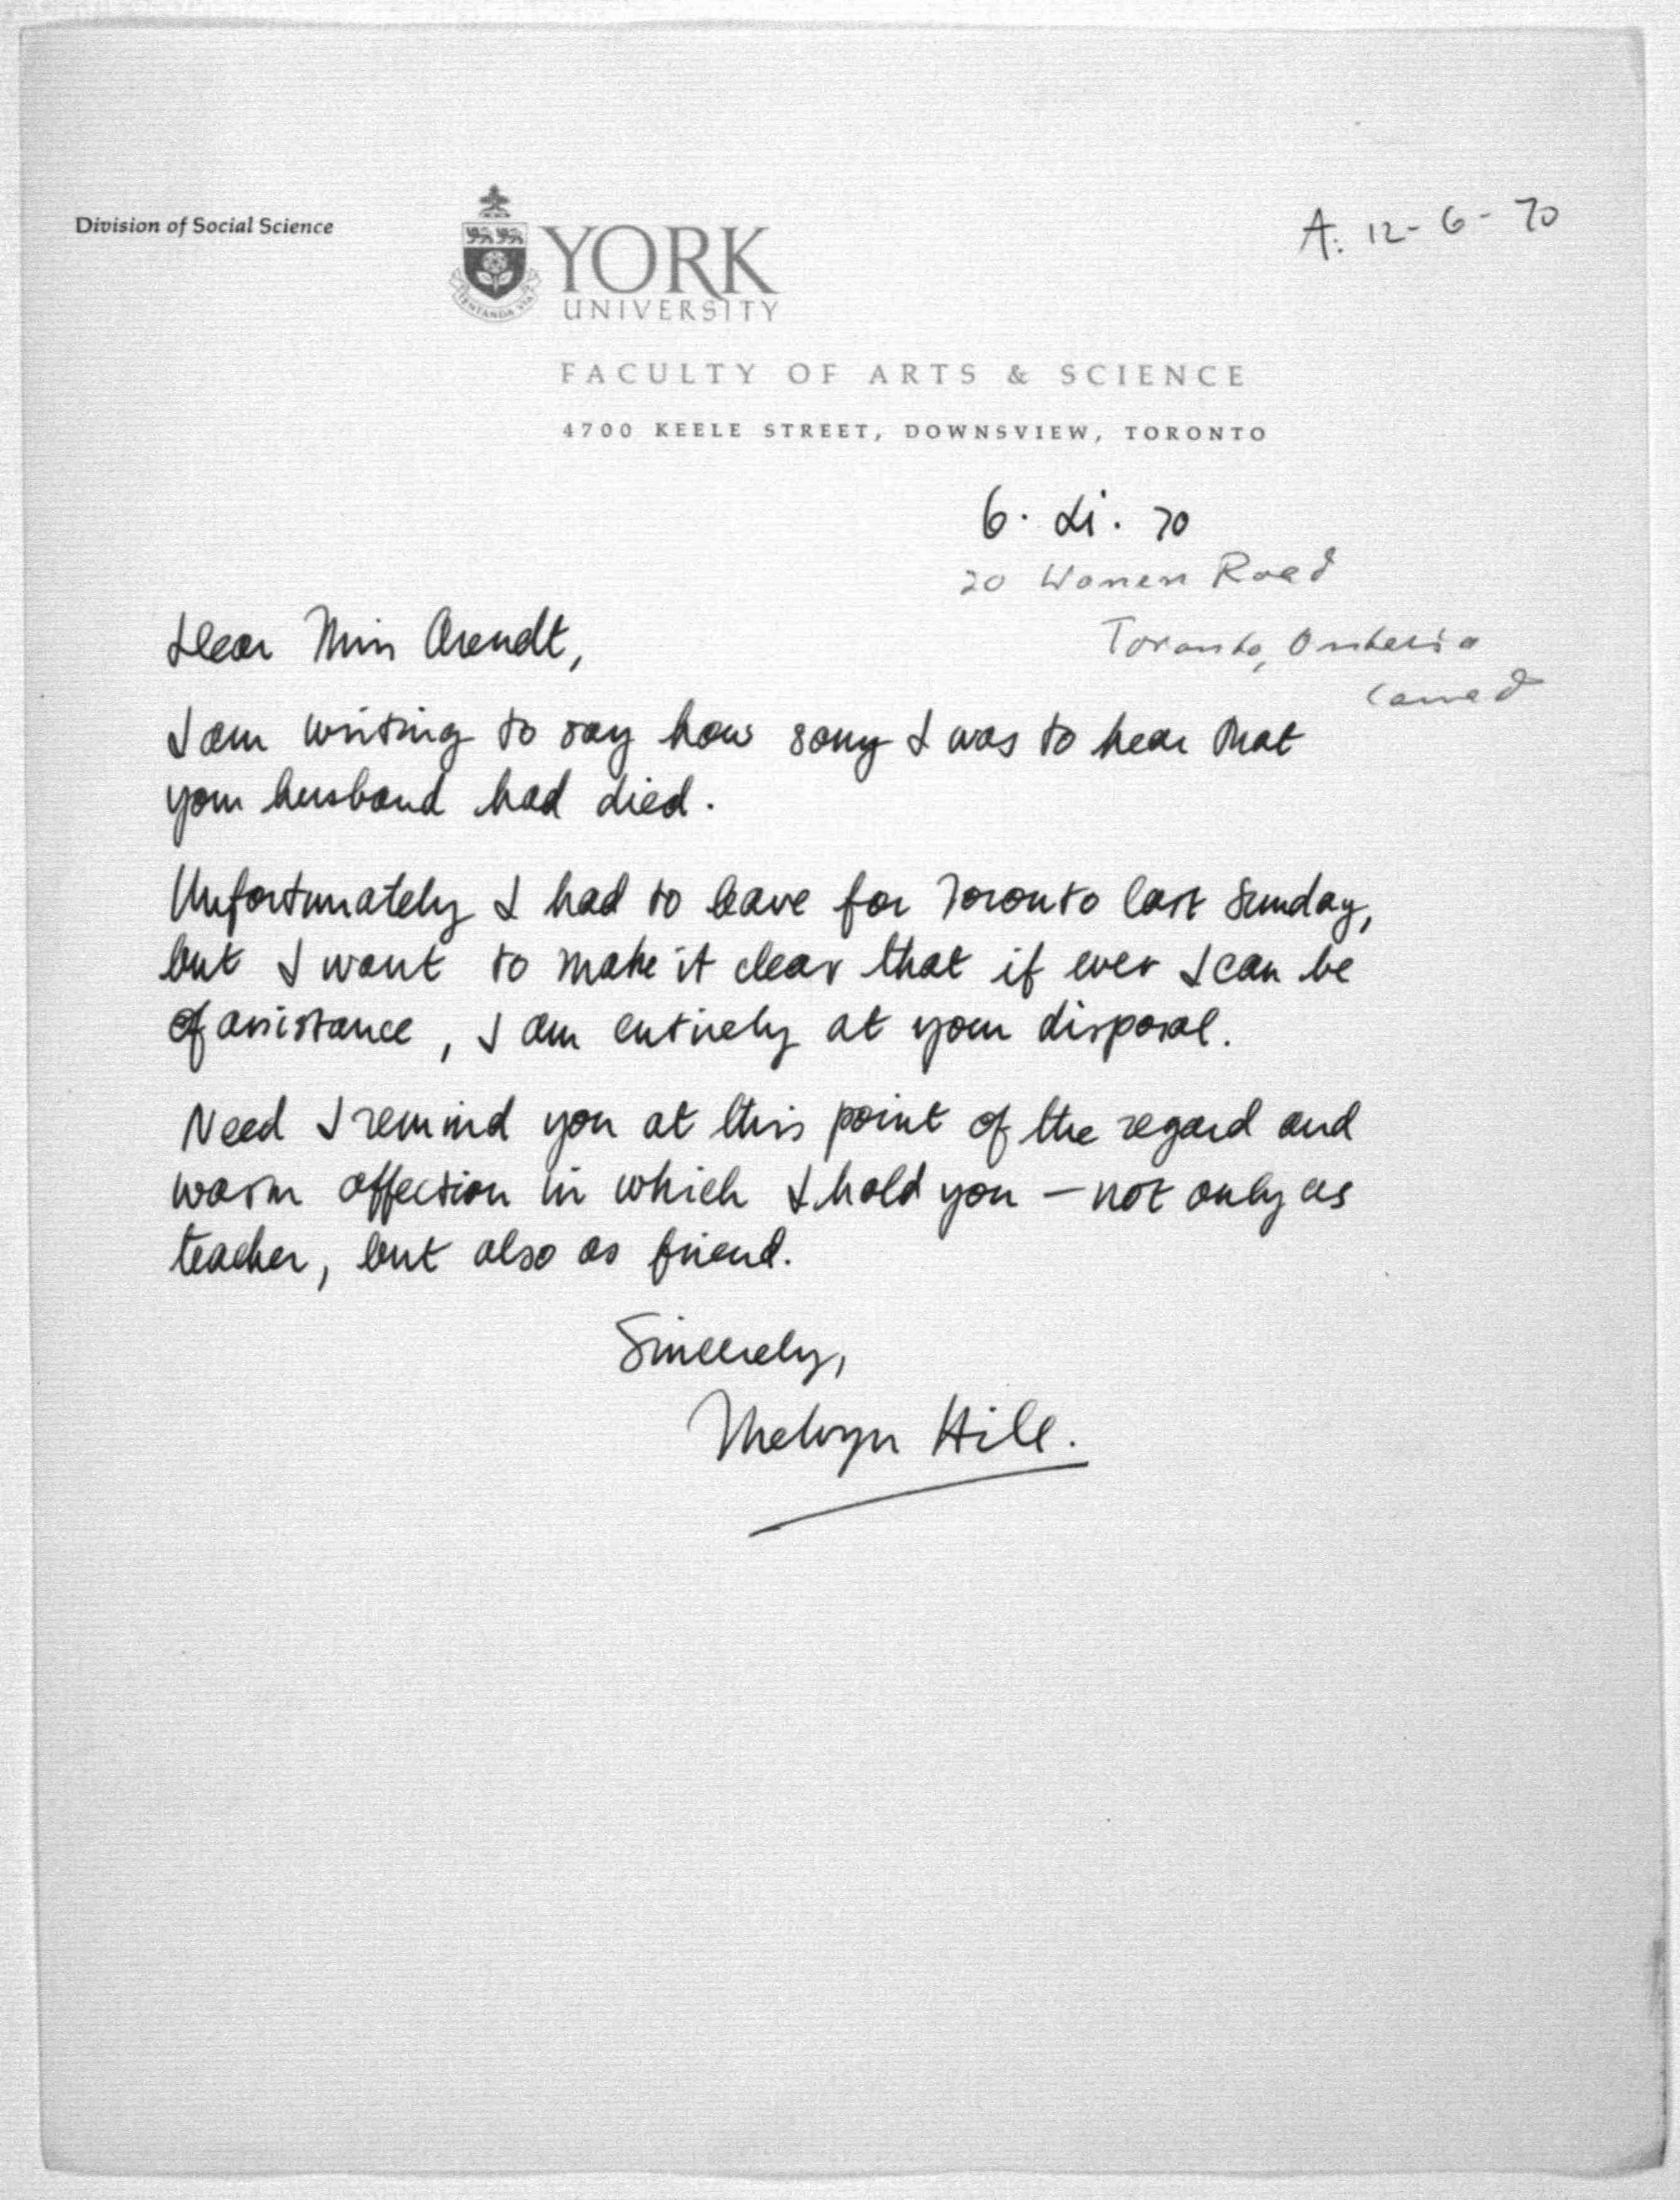 Division of Social Science
TENTANDA VIA
YORK
UNIVERSITY
A: 12-6-70
FACULTY OF ARTS & SCIENCE
4700 KEELE STREET, DOWNSVIEW, TORONTO
6. xi. 70
20 Road
Toronto, Ontario
Canad
Dear Miss Arendt,
I am writing to say how sorry I was to hear that
your husband had died.
Unfortunately I had to leave for Toronto last Sunday,
but I want to make it clear that if ever I can be
of assistance, I am entirely at your disposal.
Need I remind you at this point of the regard and
warm affection in which I hold you – not only as
teacher, but also as friend.
Sincerely,
Melvyn Hill.